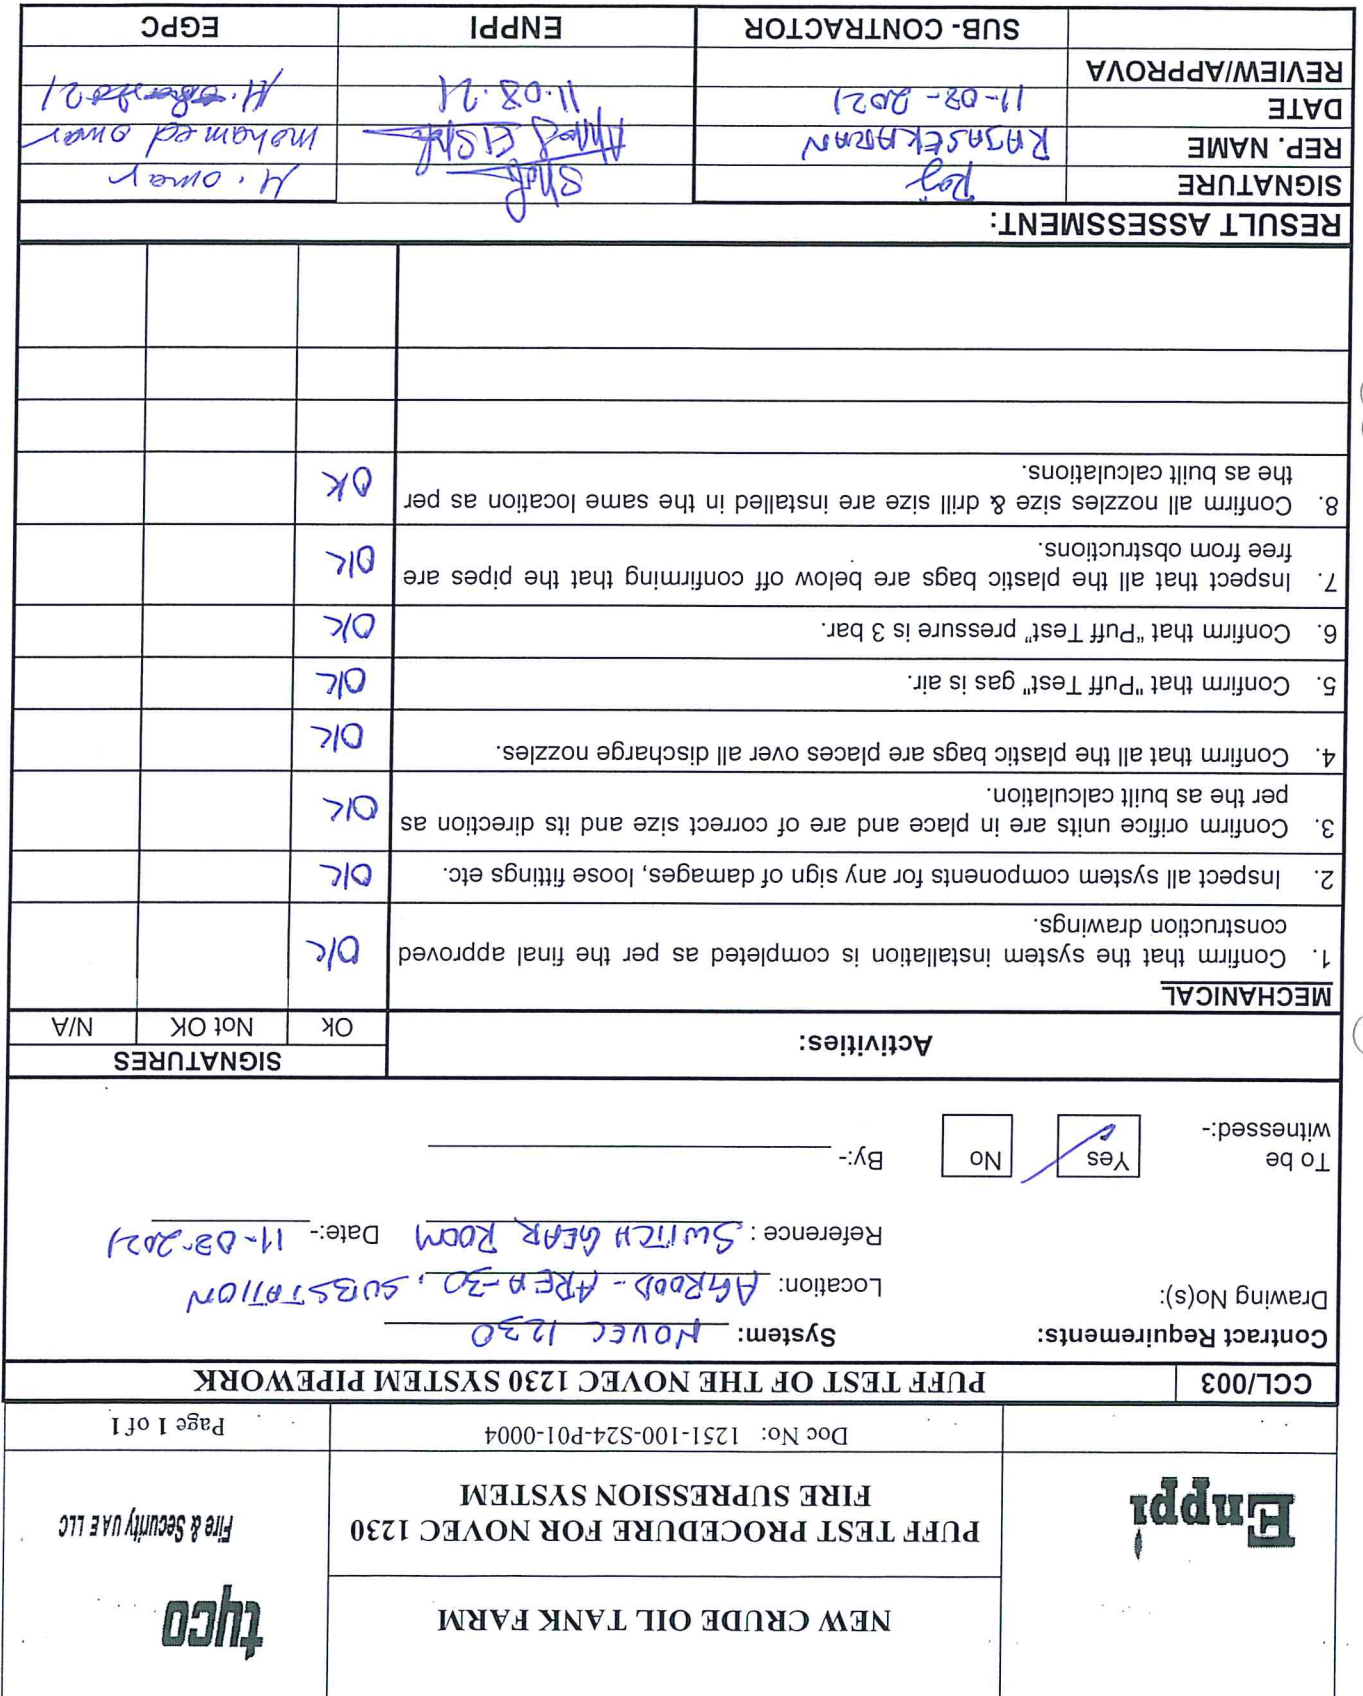 Enppi
NEW CRUDE OIL TANK FARM
tyco
Fire & Security UAE LLC
PUFF TEST PROCEDURE FOR NOVEC 1230
FIRE SUPRESSION SYSTEM
Doc No: 1251-100-S24-P01-0004
Page 1 of 1
CCL/003
PUFF TEST OF THE NOVEC 1230 SYSTEM PIPEWORK
Contract Requirements:
System: NOVEC 1230
Drawing No(s):
Location: AGROOD - AREA-30, SUBSTATION
Reference: SWITCH GEAR ROOM Date:- 11-08-2021
To be
witnessed:-
Yes
No
By:-
Activities:
SIGNATURES
Ok
Not OK
N/A
MECHANICAL
1. Confirm that the system installation is completed as per the final approved
construction drawings.
OK
2. Inspect all system components for any sign of damages, loose fittings etc.
OK
3. Confirm orifice units are in place and are of correct size and its direction as
per the as built calculation.
OK
4. Confirm that all the plastic bags are places over all discharge nozzles.
OK
5. Confirm that "Puff Test" gas is air.
OK
6. Confirm that "Puff Test" pressure is 3 bar.
OK
7. Inspect that all the plastic bags are below off confirming that the pipes are
free from obstructions.
OK
8. Confirm all nozzles size & drill size are installed in the same location as per
the as built calculations.
OK
RESULT ASSESSMENT:
SIGNATURE
Raj
M. omar
REP. NAME
RAJASEKARAN
Ahmed
mohamed omar
DATE
11-08-2021
11.08.21
REVIEW/APPROVA
SUB- CONTRACTOR
ENPPI
EGPC